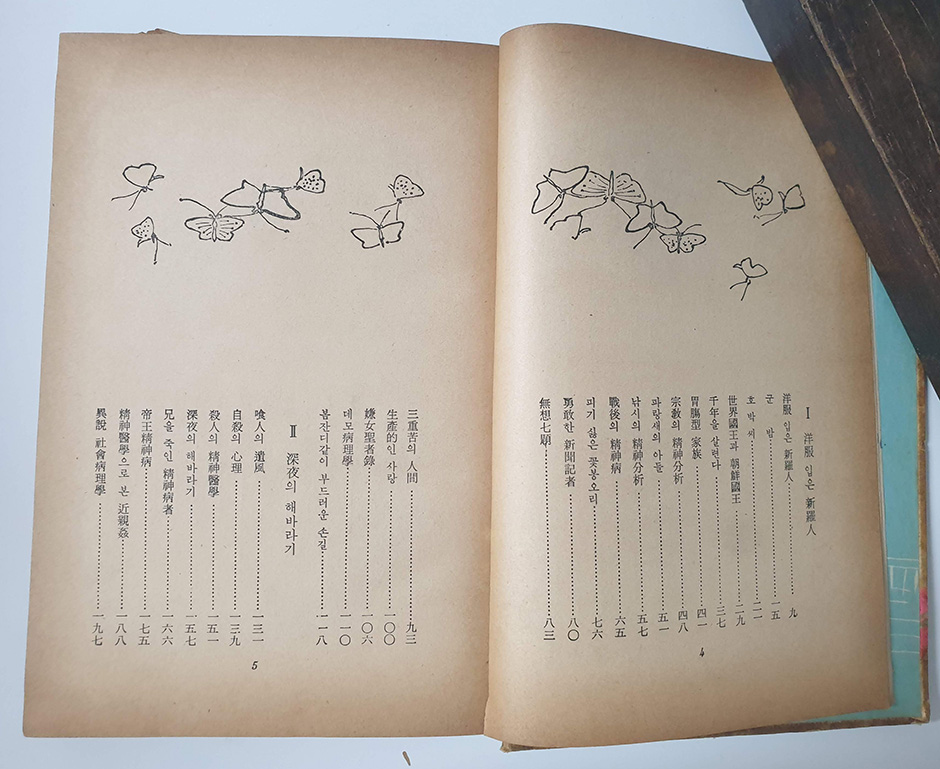 Ⅰ 洋服 입은 新羅人
洋服 입은 新羅人 九
군 밤 一五
호 박 씨 二一
世界國王과 朝鮮國王 二九
千年을 살련다 三七
胃腸型 家族 四一
宗敎의 精神分析 四八
파랑새의 아들 五一
낚시의 精神分析 五七
戰後의 精神病 六五
피기 싫은 꽃봉오리 七六
勇敢한 新聞記者 八〇
無想七題 八三
4
三重苦의 人間 九三
生產的인 사랑 一〇〇
嫌女聖者錄 一〇六
데모病理學 一一〇
봄잔디같이 부드러운 손길 一一八
Ⅱ 深夜의 해바라기
喰人의 遺風 一三一
自殺의 心理 一三九
殺人의 精神醫學 一五一
深夜의 해바라기 一五七
兄을 죽인 精神病者 一六六
帝王精神病 一七五
精神醫學으로 본 近親姦 一八八
異說 社會病理學 一九七
5